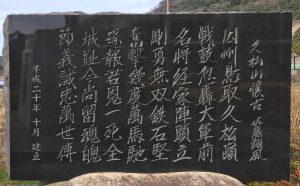 久松山懐古 佐藤翔風
因州鳥取久松嶺
戦鼓忽轟大軍前
名将経家陣頭立
剛勇無双鉄石堅
奮撃幾度萬馬馳
残報君恩一死全
城趾今尚留魂魄
節義誠忠萬世傳
平成二十年十月 建立